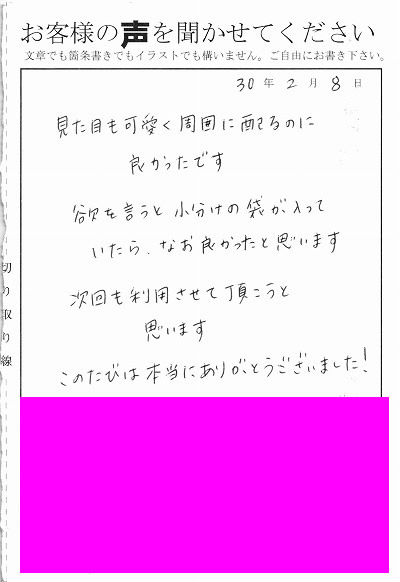 お客様の声を聞かせてください
文章でも箇条書きでもイラストでも構いません。ご自由にお書き下さい。
30年2月8日
見た目も可愛く周囲に配るのに
良かったです
欲を言うと小分けの袋が入って
いたら、なお良かったと思います
次回も利用させて頂こうと
思います
このたびは本当にありがとうございました!
切り取り線